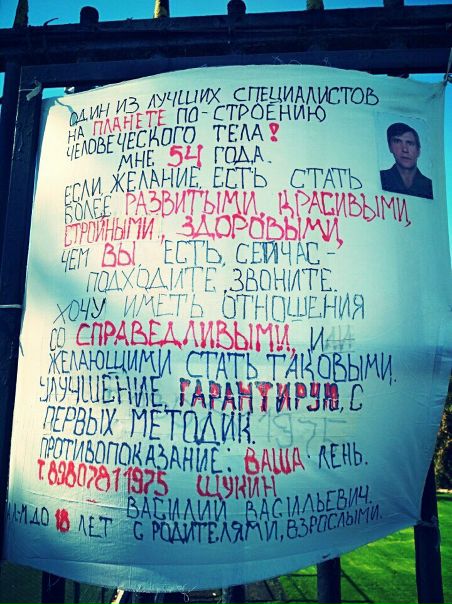 ОДИН ИЗ ЛУЧШИХ СПЕЦИАЛИСТОВ
НА ПЛАНЕТЕ ПО-СТРОЕНИЮ
ЧЕЛОВЕЧЕСКОГО ТЕЛА!
МНЕ 54 ГОДА.
ЕСЛИ, ЖЕЛАНИЕ, ЕСТЬ СТАТЬ
БОЛЕЕ РАЗВИТЫМИ, КРАСИВЫМИ,
СТРОЙНЫМИ, ЗДОРОВЫМИ,
ЧЕМ ВЫ ЕСТЬ, СЕЙЧАС -
ПОДХОДИТЕ, ЗВОНИТЕ.
ХОЧУ ИМЕТЬ ОТНОШЕНИЯ
СО СПРАВЕДЛИВЫМИ, И
ЖЕЛАЮЩИМИ СТАТЬ ТАКОВЫМИ.
УЛУЧШЕНИЕ ГАРАНТИРУЮ, С
ПЕРВЫХ МЕТОДИК.
ПРОТИВОПОКАЗАНИЕ: ВАША ЛЕНЬ.
Т.89807811975 ЩУКИН
ВАСИЛИЙ ВАСИЛЬЕВИЧ.
ДО 18 ЛЕТ С РОДИТЕЛЯМИ, ВЗРОСЛЫМИ.